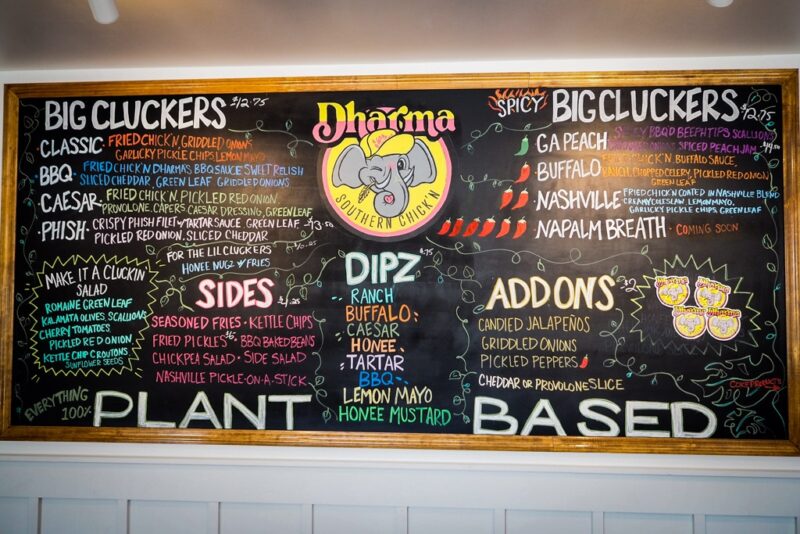 BIG CLUCKERS $12.75
CLASSIC- FRIED CHICK'N GRIDDLED ONIONS
GARLICKY PICKLE CHIPS LEMON MAYO
BBQ- FRIED CHICK'N DHARMA'S BBQ SAUCE SWEET RELISH
SLICED CHEDDAR GREEN LEAF GRIDDLED ONIONS
CAESAR- FRIED CHICK'N, PICKLED RED ONION
PROVOLONE, CAPERS CAESAR DRESSING, GREEN LEAF
PHISH- CRISPY PHISH FILET W/ TARTAR SAUCE GREEN LEAF $13.50
PICKLED RED ONION. SLICED CHEDDAR
FOR THE LIL CLUCKERS
HONEE NUGZ W/ FRIES
MAKE IT A CLUCKIN
SALAD
ROMAINE GREEN LEAF
KALAMATA OLIVES, SCALLIONS
CHERRY TOMATOES
PICKLED RED ONION
KETTLE CHIP CROUTONS
SUNFLOWER SEEDS
SIDES
SEASONED FRIES · KETTLE CHIPS
FRIED PICKLES $6 · BBQ BAKED BEANS
CHICKPEA SALAD · SIDE SALAD
NASHVILLE PICKLE-ON-A-STICK
Dharma
SOUTHERN CHICK'N
DIPZ .75
RANCH
BUFFALO
CAESAR
HONEE
TARTAR
BBQ
LEMON MAYO
HONEE MUSTARD
SPICY
BIG CLUCKERS $12.75
GA PEACH- SPICY BBQ'D BEEPH TIPS SCALLIONS
SPICED PEACH JAM
BUFFALO- FRIED CHICK'N, BUFFALO SAUCE,
RANCH, CHOPPED CELERY, PICKLED RED ONION
GREEN LEAF
NASHVILLE- FRIED CHICK'N COATED IN NASHVILLE BLEND
CREAMY COLESLAW LEMON MAYO,
GARLICKY PICKLE CHIPS GREEN LEAF
NAPALM BREATH- COMING SOON
ADD ONS $2
CANDIED JALAPEÑOS
GRIDDLED ONIONS
PICKLED PEPPERS
CHEDDAR OR PROVOLONE SLICE
COKE PRODUCTS
EVERYTHING
100%
PLANT BASED